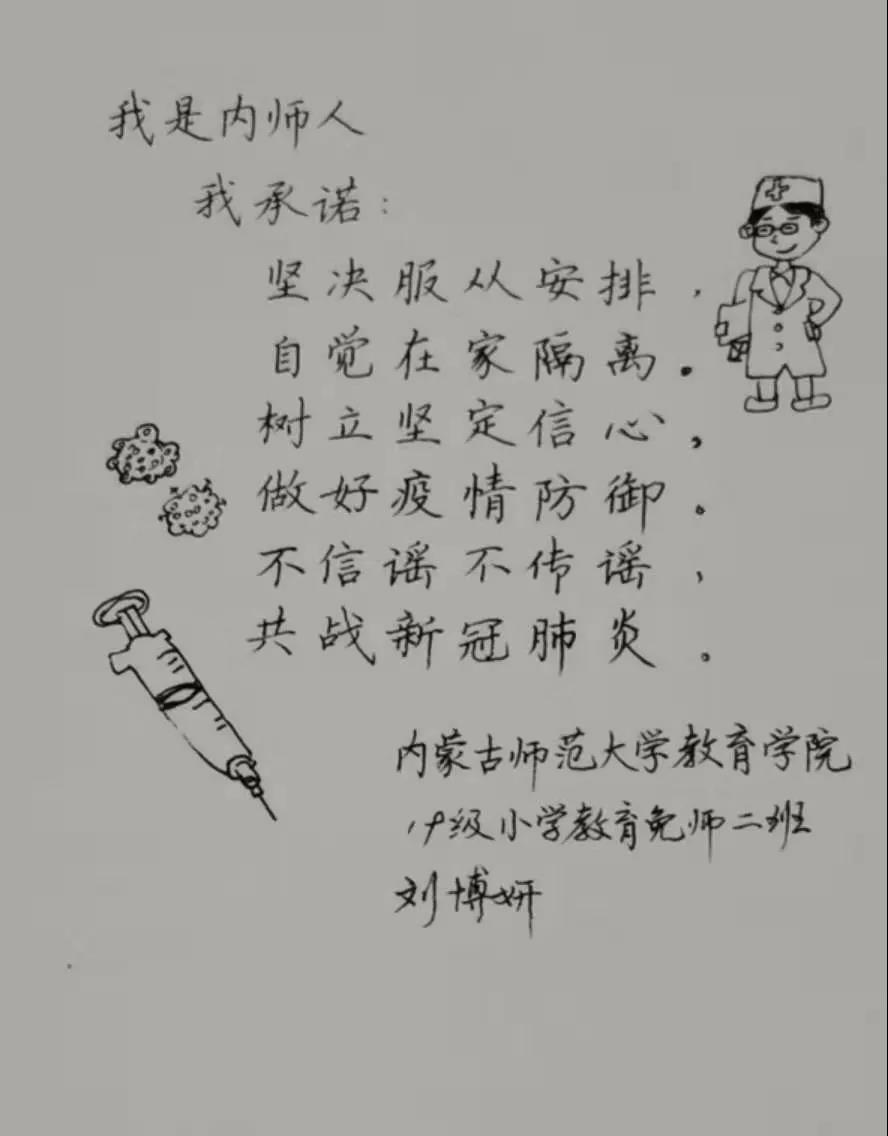 我是内师人
我承诺:
坚决服从安排,
自觉在家隔离。
树立坚定信心,
做好疫情防御。
不信谣不传谣,
共战新冠肺炎。
内蒙古师范大学教育学院
19级小学教育免师二班
刘博妍